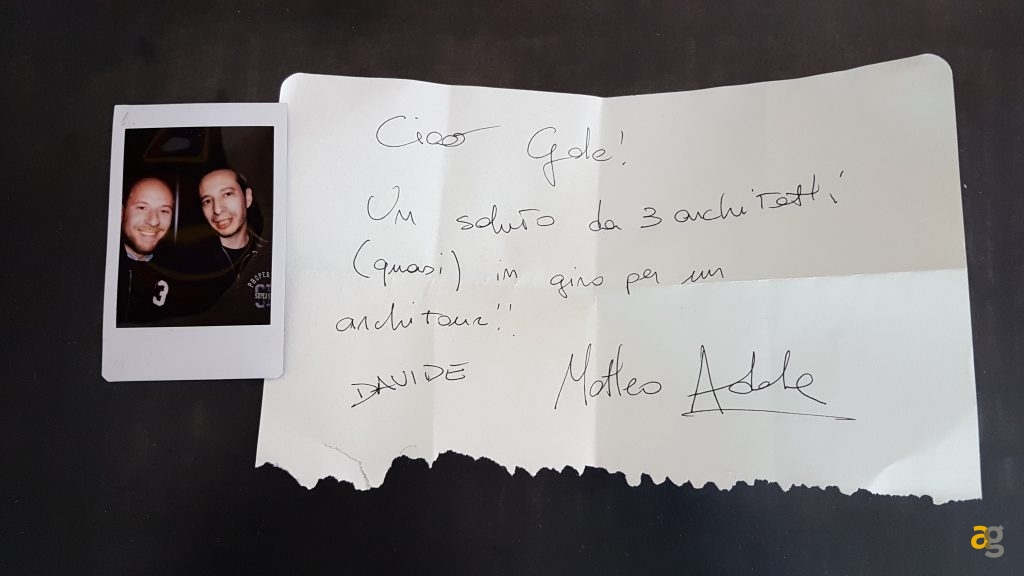 Ciao Gde!
Un saluto da 3 architetti
(quasi) in giro per un
architour!!
DAVIDE Matteo Adele
3
PROPERTY
SUPER
ag